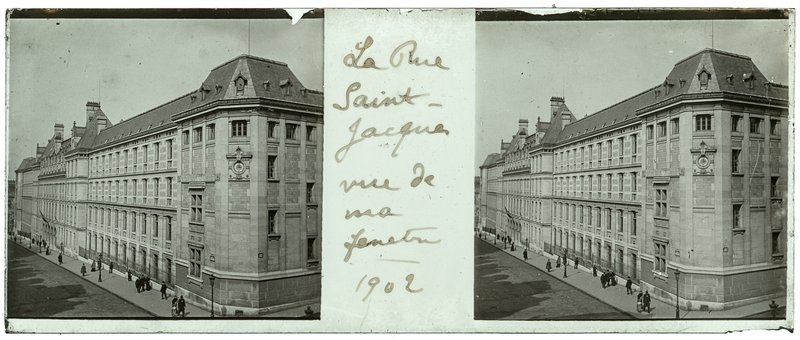 La Rue
Saint-
Jacques
vue de
ma
fenetre
1902